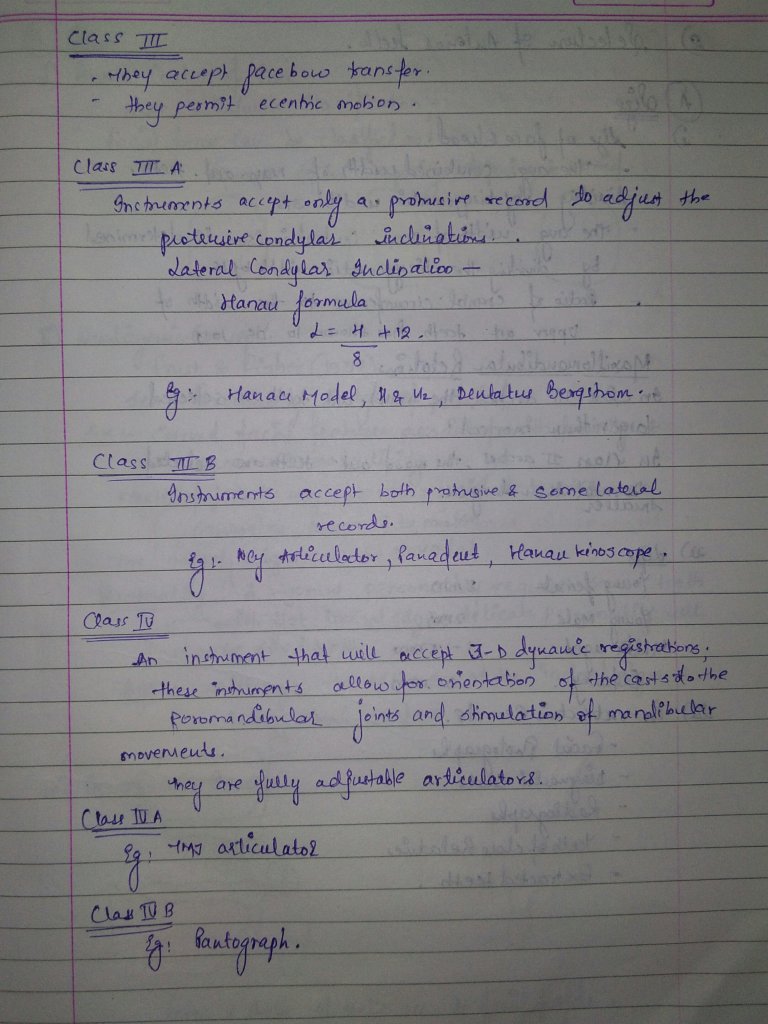 Class III
- They accept facebow transfer.
- They permit ecentric motion.
Class III A
Instruments accept only a protrusive record to adjust the
protrusive condylar inclinations.
Lateral Condylar Inclination —
Hanau formula
L = H/8 + 12.
Eg:- Hanau Model, H & H2, Dentatus Bergstrom.
Class III B
Instruments accept both protrusive & some lateral
records.
Eg:- Ney Articulator, Panadent, Hanau kinoscope.
Class IV
An instrument that will accept 3-D dynamic registrations,
these instruments allow for orientation of the casts to the
poromandibular joints and stimulation of mandibular
movements.
They are fully adjustable articulators.
Class IV A
Eg: TMJ articulator
Class IV B
Eg: Pantograph.